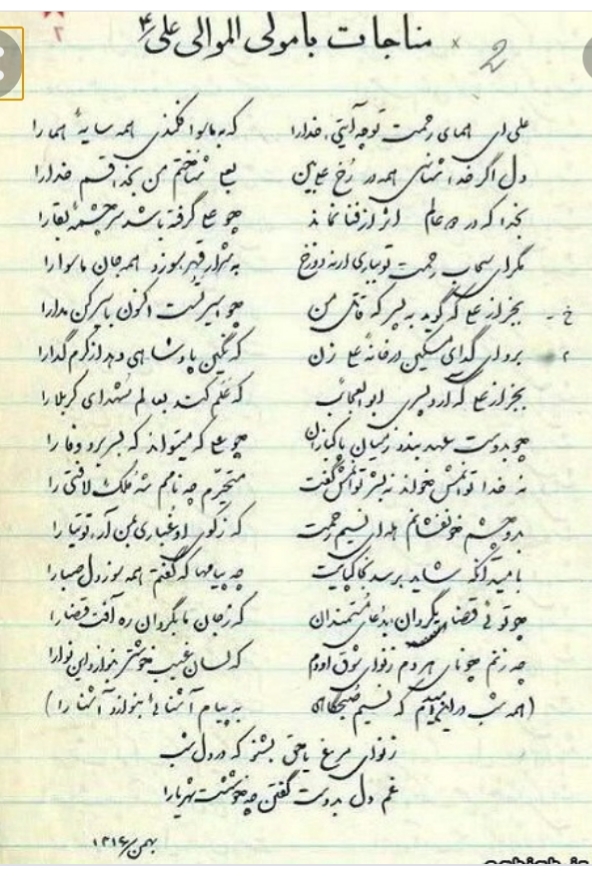 ۲
مناجات با مولی الموالی علی ع × 2
علی ای همای رحمت تو چه آیتی خدارا که به ماسوا فکندی همه سایهٔ هما را
دل اگر خداشناسی همه در رخ علی بین بعلی شناختم من بخدا قسم خدارا
بخدا که در دو عالم اثر از فنا نماند چو علی گرفته باشد سرچشمهٔ بقا را
مگر ای سحاب رحمت تو بباری ارنه دوزخ به شرار قهر سوزد همه جان ماسوا را
خ - بجز از علی که گوید به پسر که قاتل من چو اسیر تست اکنون باسیر کن مدارا
برو ای گدای مسکین در خانهٔ علی زن که نگین پادشاهی دهد از کرم گدا را
بجز از علی که آرد پسری ابوالعجائب که علم کند بعالم شهدای کربلا را
چو بدوست عهد بندد ز میان پاکبازان چو علی که میتواند که بسر برد وفا را
نه خدا توانمش خواند نه بشر توانمش گفت متحیرم چه نامم شه ملک لافتی را
بدو چشم خونفشانم هله ای نسیم رحمت که ز کوی او غباری بمن آر توتیا را
بامید آنکه شاید برسد بخاکپایت چه پیامها که گفتم همه سوز دل صبا را
چو توئی قضا بگردان بدعای مستمندان که ز جان ما بگردان ره آفت قضا را
چه زنم چو نای هردم ز نوای شوق او دم که لسان غیب خوشتر بنوازد این نوا را
(همه شب در این امیدم که نسیم صبحگاهی به پیام آشنائی بنوازد آشنا را)
ز نوای مرغ یا حق بشنو که در دل شب
غم دل بدوست گفتن چه خوشست شهریارا